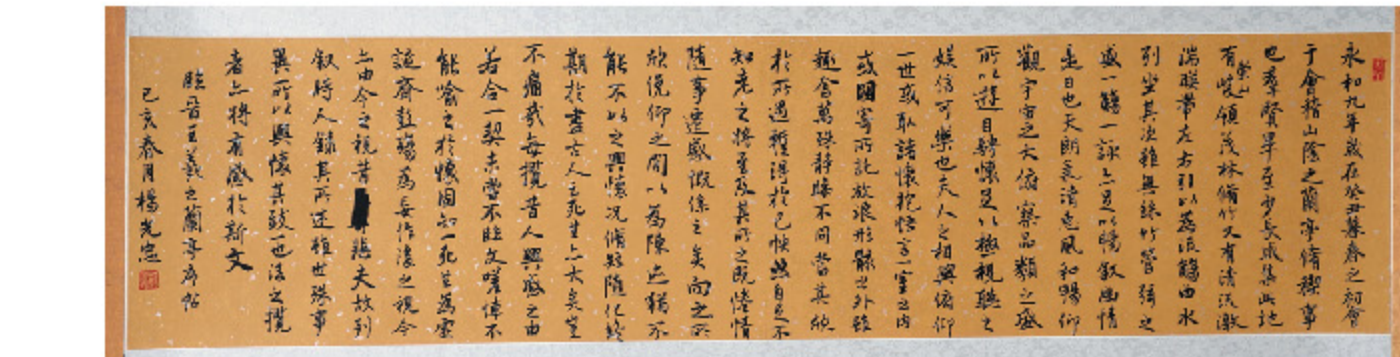 永和九年歲在癸丑暮春之初會
于會稽山陰之蘭亭脩禊事
也羣賢畢至少長咸集此地
有崇山峻領茂林脩竹又有清流激
湍暎帶左右引以為流觴曲水
列坐其次雖無絲竹管弦之
盛一觴一詠亦足以暢叙幽情
是日也天朗氣清惠風和暢仰
觀宇宙之大俯察品類之盛
所以遊目騁懷足以極視聽之
娛信可樂也夫人之相與俯仰
一世或取諸懷抱悟言一室之內
或因寄所託放浪形骸之外雖
趣舍萬殊靜躁不同當其欣
於所遇蹔得於己快然自足不
知老之將至及其所之既惓情
隨事遷感慨係之矣向之所
欣俛仰之間以為陳迹猶不
能不以之興懷況脩短隨化終
期於盡古人云死生亦大矣豈
不痛哉每攬昔人興感之由
若合一契未嘗不臨文嗟悼不
能喻之於懷固知一死生為虛
誕齊彭殤為妄作後之視今
亦由今之視昔悲夫故列
叙時人錄其所述雖世殊事
異所以興懷其致一也後之攬
者亦將有感於斯文
臨晉王羲之蘭亭序帖
己亥春月楊光